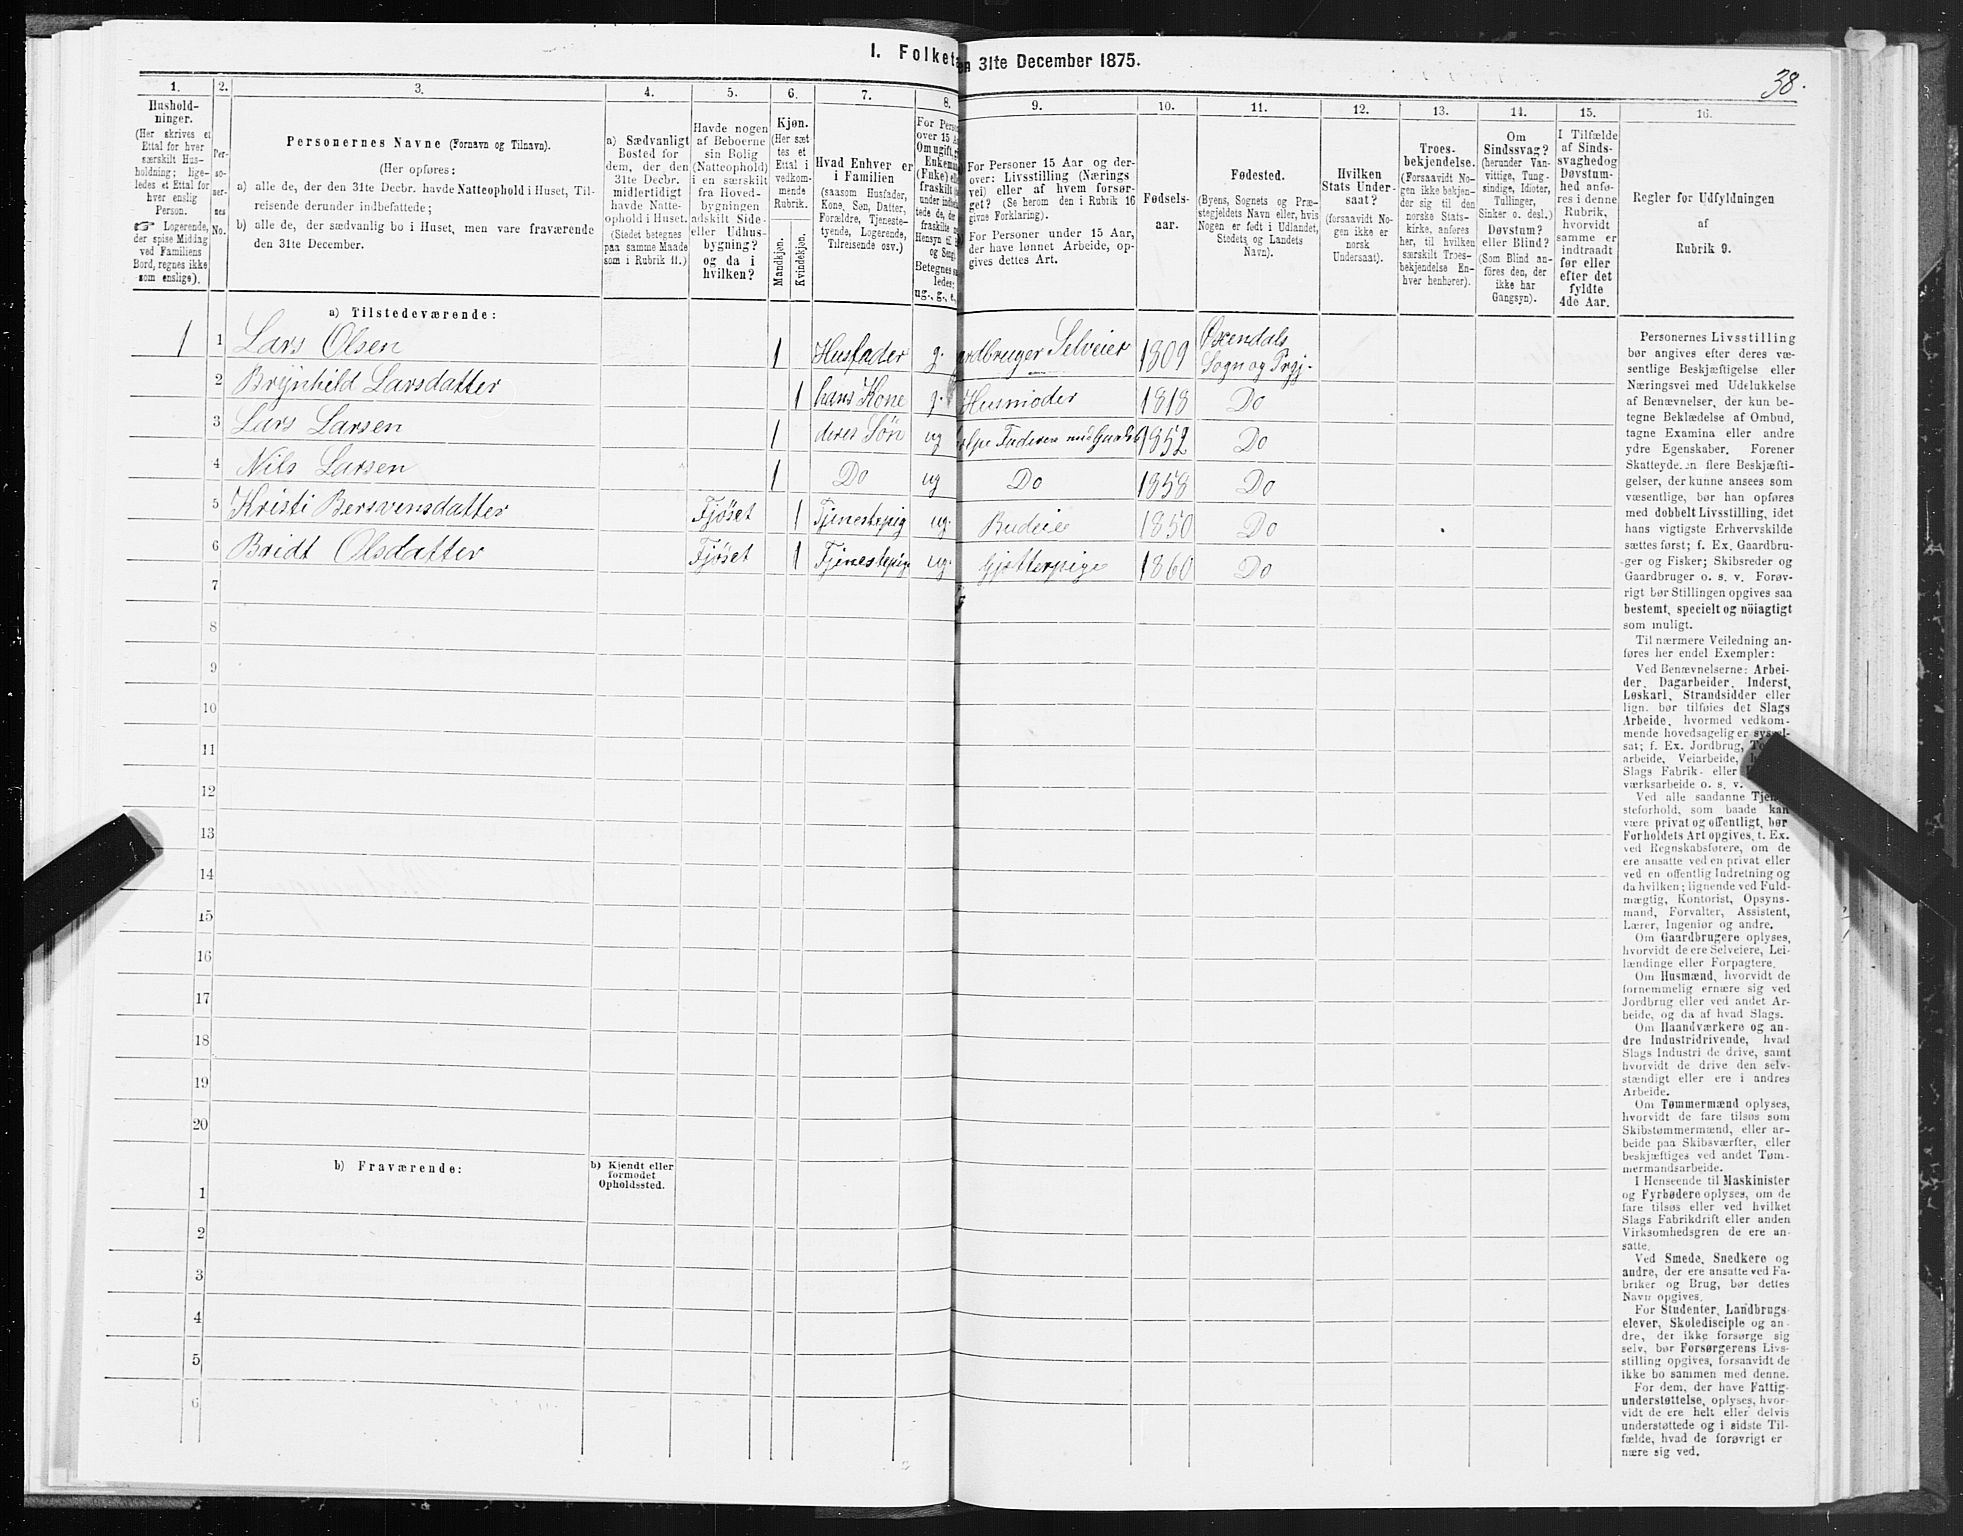 I. Folket
en 31te December 1875.
38.
1.
2.
3.
4.
5.
6.
7.
8.
9.
10.
11.
12.
13.
14.
15.
16.
Hushold-
ninger.
(Her skrives et
Ettal for hver
særskilt Hus-
holdning; lige-
ledes et Ettal for
hver enslig
Person.
☞ Logerende,
der spise Middag
ved Familiens
Bord, regnes ikke
som enslige).
Per-
so-
ner-
nes
No.
Personernes Navne (Fornavn og Tilnavn).
(Her opføres:
a) alle de, der den 31te Decbr. havde Natteophold i Huset, Til-
reisende derunder indbefattede;
b) alle de, der sædvanlig bo i Huset, men vare fraværende
den 31te December.
a) Sædvanligt
Bosted for
dem, der den
31te Decbr.
midlertidigt
havde Natte-
ophold i Huset.
(Stedet betegnes
paa samme Maade
som i Rubrik 11.)
Havde nogen
af Beboerne
sin Bolig
(Natteophold)
i en særskilt
fra Hoved-
bygningen
adskilt Side-
eller Udhus-
bygning?
og da i
hvilken?
Kjøn.
(Her sæt
tes et
Ettal i
vedkom-
mende
Rubrik.
Mandkjøn.
Kvindekjøn.
Hvad Enhver er
i Familien
(saasom Husfader,
Kone, Søn, Datter,
Forældre, Tjeneste-
tyende, Logerende,
Tilreisende osv.)
For Pers
over 15 A
Om ugift, g
Enkem
(Fuke) el
fraskilt
under indbe
tede de,
fraskilte
Hensyn til
og Seng
Betegnes s
ledes:
ug., g., e.,
For Personer 15 Aar og der-
over: Livsstilling (Nærings
vei) eller af hvem forsør-
get? (Se herom den i Rubrik 16
givne Forklaring).
For Personer under 15 Aar,
der have lønnet Arbeide, op-
gives dettes Art.
Fødsels-
aar.
Fødested.
(Byens, Sognets og Præ-
stegjeldets Navn eller, hvis
Nogen er født i Udlandet,
Stedets og Landets
Navn).
Hvilken
Stats Under-
saat?
(forsaavidt No-
gen ikke er
norsk
Undersaat).
Troes-
bekjendelse.
(Forsaavidt No
gen ikke bekjen-
der sig til den
norske Stats-
kirke, anføres
her, til hvilken
særskilt Troes-
bekjendelse En-
hver henhører).
Om
Sindssvag?
(herunder Van-
vittige, Tung-
sindige, Idioter,
Tullinger,
Sinker o. desl.)
Døvstum?
eller Blind?
(Som Blind an-
føres den, der
ikke har
Gangsyn).
I Tilfælde
af Sinds-
svaghedog
Døvstum-
hed anfø-
res i denne
Rubrik,
hvorvidt
samme er
indtraadt
før eller
efter det
fyldte
4de Aar.
Regler for Udfyldningen
af
Rubrik 9.
a) Tilstedeværende:
1 1 Lars Olsen 1 Husfader g. ardbruger Selveier 1809 Øxendals
Sogn og Prgj.
2 Brynhild Larsdatter 1 hans Kone g. Husmoder 1818 Do
3 Lars Larsen 1 deres Søn ug Faderen 1852 Do
4 Nils Larsen 1 Do ug Do 1858 Do
5 Kristi Bersvensdatter Fjøset 1 Tjenestepig ug. Budeie 1850 Do
6 Bridt Olsdatter Fjøset 1 Tjenestepige ug. Gjetterpige 1860 Do
7
8
9
10
11
12
13
14
15
16
17
18
19
20
b) Fraværende:
b) Kjendt eller
formodet
Opholdssted.
1
2
3
4
5
6
Personernes Livsstilling
bør angives efter deres væ-
sentlige Beskjæftigelse eller
Næringsvei med Udelukkelse
af Benævnelser, der kun be-
tegne Beklædelse af Ombud,
tagne Examina eller andre
ydre Egenskaber. Forener
Skatteyderen flere Beskjæfti-
gelser, der kunne ansees som
væsentlige, bør han opføres
med dobbelt Livsstilling, idet
hans vigtigste Erhvervskilde
sættes først; f. Ex. Gaardbru-
ger og Fisker; Skibsreder og
Gaardbruger o. s. v. Forøv-
rigt bør Stillingen opgives saa
bestemt, specielt og nöiagtigt
som muligt.
Til nærmere Veiledning an-
føres her endel Exempler:
Ved Benævnelserne: Arbei-
der, Dagarbeider, Inderst,
Løskarl, Strandsidder eller
lign. bør tilføies det Slags
Arbeide, hvormed vedkom-
mende hovedsagelig er syssel-
sat; f. Ex. Jordbrug,
arbeide, Veiarbeide,
Slags Fabrik- eller
værksarbeide o. s. v.
Ved alle saadanne Tjene-
steforhold, som baade kan
være privat og offentligt, bør
Forholdets Art opgives, t. Ex.
ved Regnskabsførere, om de
ere ansatte ved en privat eller
ved en offentlig Indretning og
da hvilken; lignende ved Fuld-
mægtig, Kontorist, Opsyns-
mand, Forvalter, Assistent,
Lærer, Ingeniør og andre.
Om Gaardbrugere oplyses,
hvorvidt de ere Selveiere, Lei-
lændinge eller Forpagtere.
Om Husmænd, hvorvidt de
fornemmelig ernære sig ved
Jordbrug eller ved andet Ar-
beide, og da af hvad Slags.
Om Haandværkere og an-
dre Industridrivende, hvad
Slags Industri de drive, samt
hvorvidt de drive den selv-
stændigt eller ere i andres
Arbeide.
Om Tømmermænd oplyses,
hvorvidt de fare tilsøs som
Skibstømmermænd, eller ar-
beide paa Skibsværfter, eller
beskjæftiges ved andet Tøm-
mermandsarbeide.
I Henseende til Maskinister
og Fyrbødere oplyses, om de
fare tilsøs eller ved hvilket
Slags Fabrikdrift eller anden
Virksomhedsgren de ere an-
satte.
Ved Smede, Snedkere og
andre, der ere ansatte ved Fa-
briker og Brug, bør dettes
Navn opgives.
For Studenter, Landbrugs-
elever, Skoledisciple og an-
dre, der ikke forsørge sig
selv, bør Forsørgerens Livs-
stilling opgives, forsaavidt de
ikke bo sammen med denne.
For dem, der have Fattig-
understøttelse, oplyses, hvor-
vidt de ere helt eller delvis
understøttede og i sidste Til-
fælde, hvad de forøvrigt er-
nære sig ved.